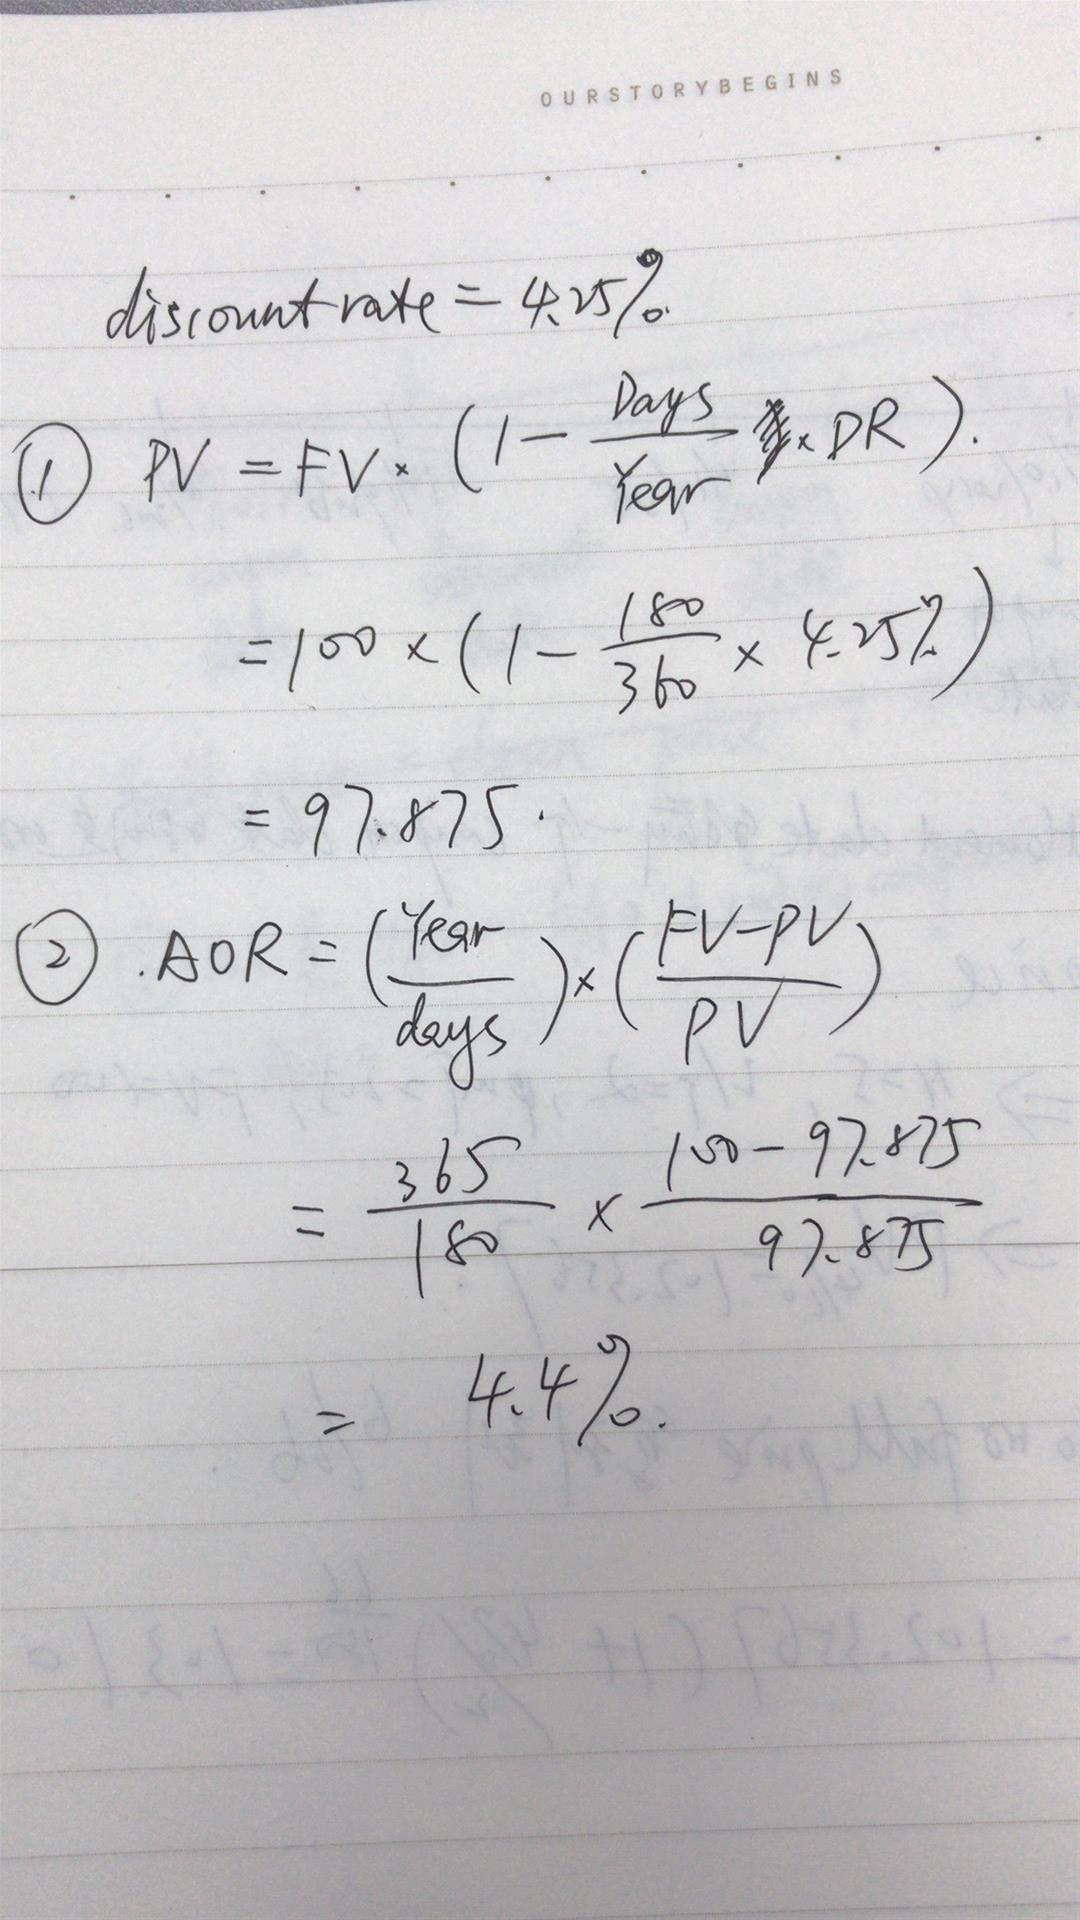 OURSTORYBEGINS
discount rate = 4.25%
① PV = FV × (1 - Days/Year × DR).
= 100 × (1 - 180/360 × 4.25%)
= 97.875.
② .AOR = (Year/days) × (FV-PV/PV)
= 365/180 × 100-97.875/97.875
= 4.4%.